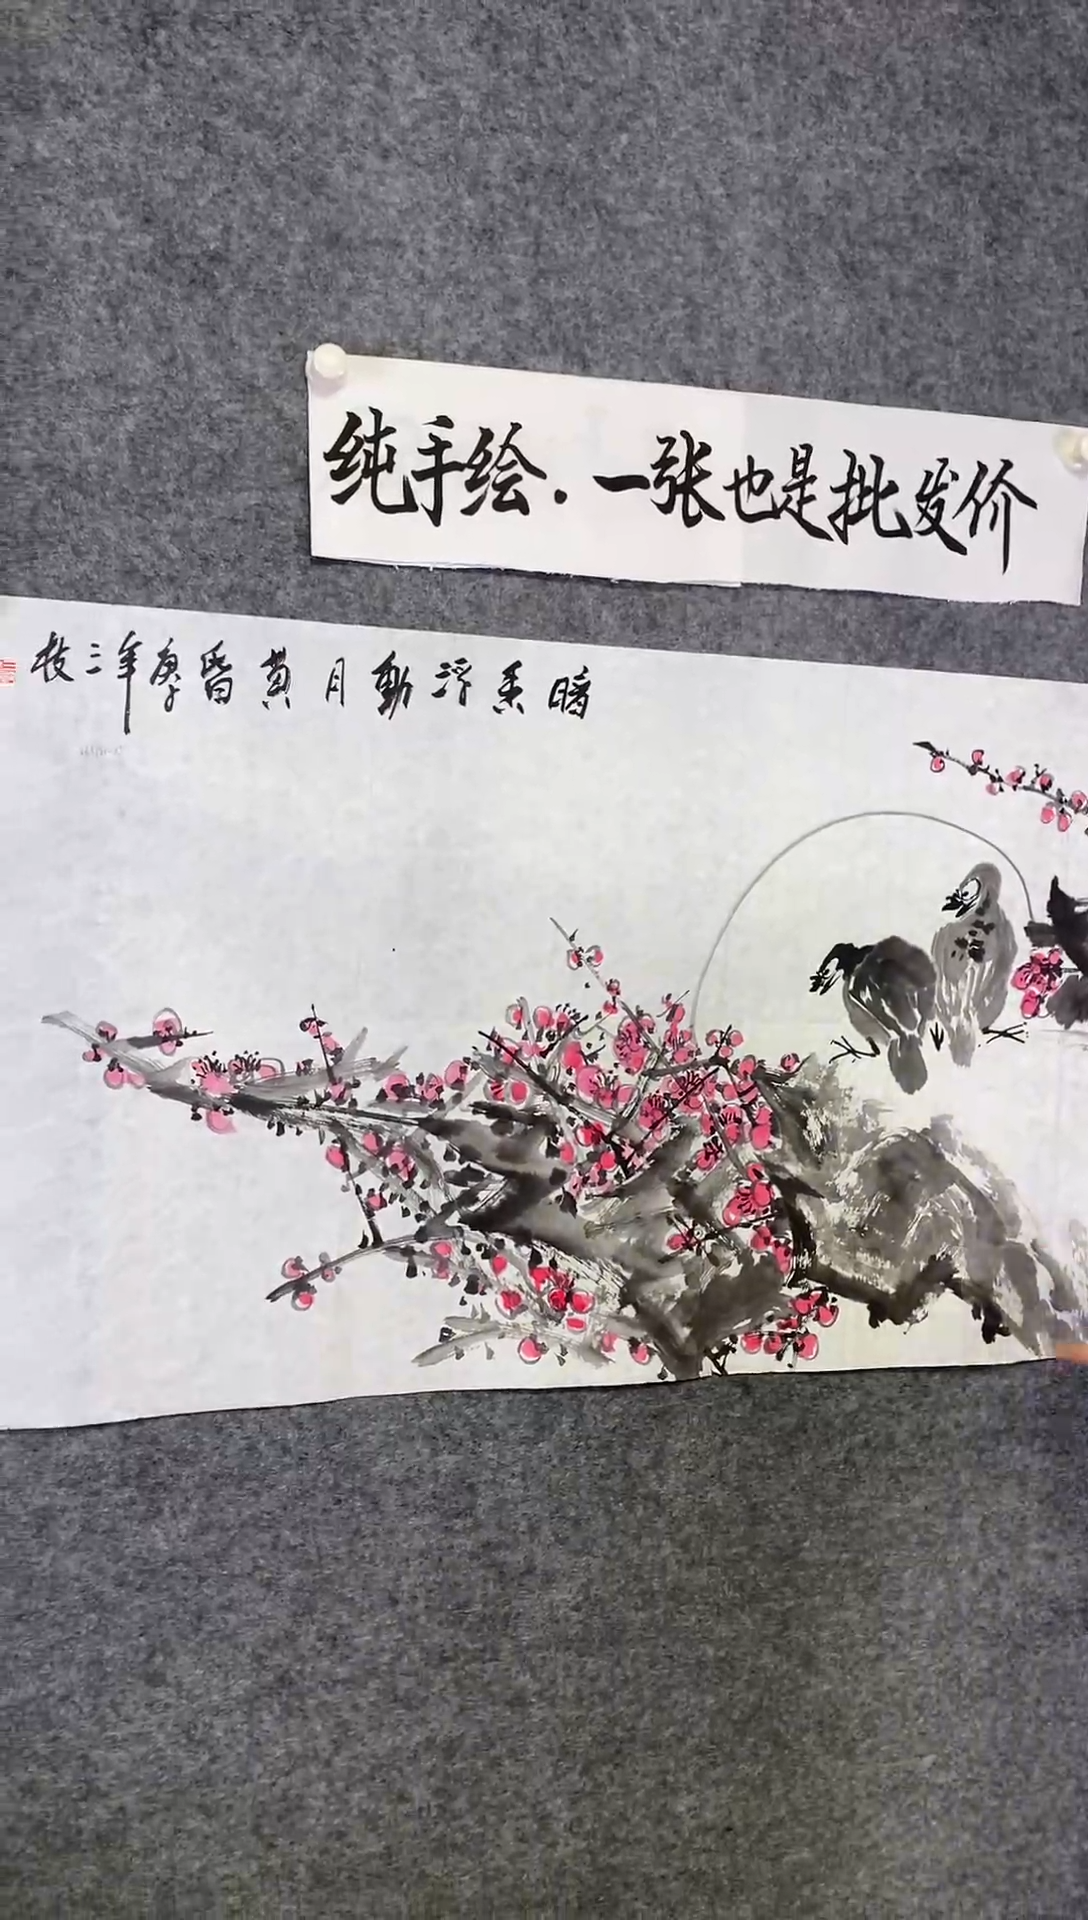 纯手绘.一张也是批发价
暗香浮動月黄昏庚子年三枝